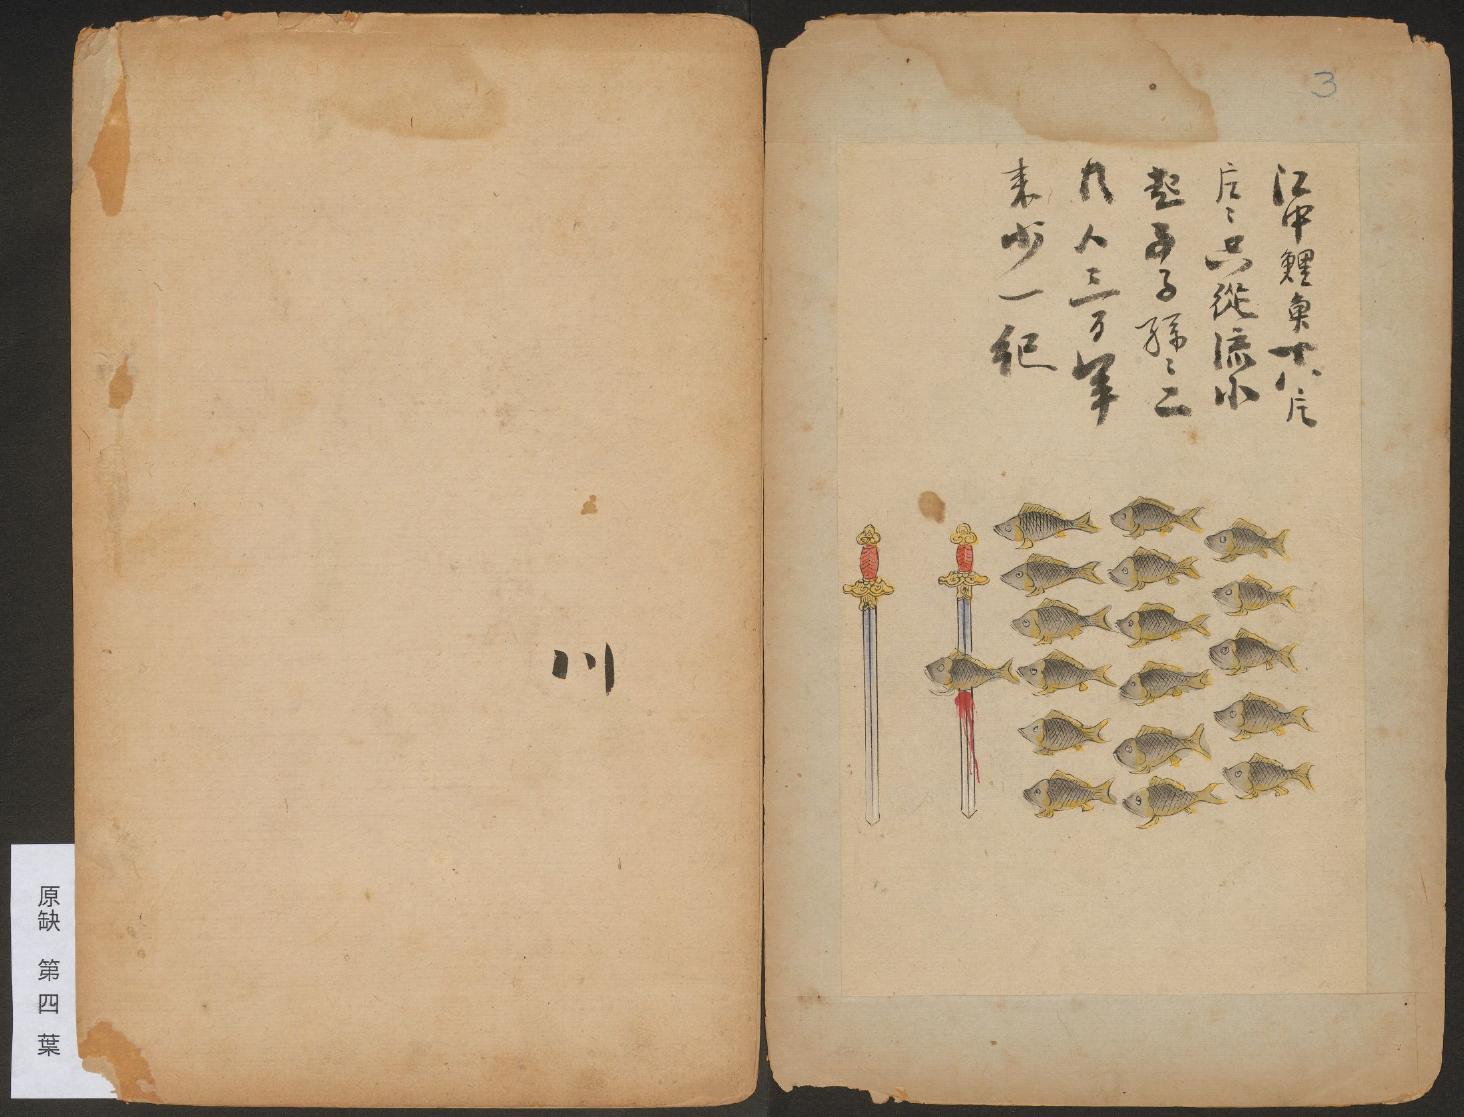 3
江中鯉魚十八片
片々只從流水
起子子孫々二
八人三万年
来少一紀
川
原缺 第四葉